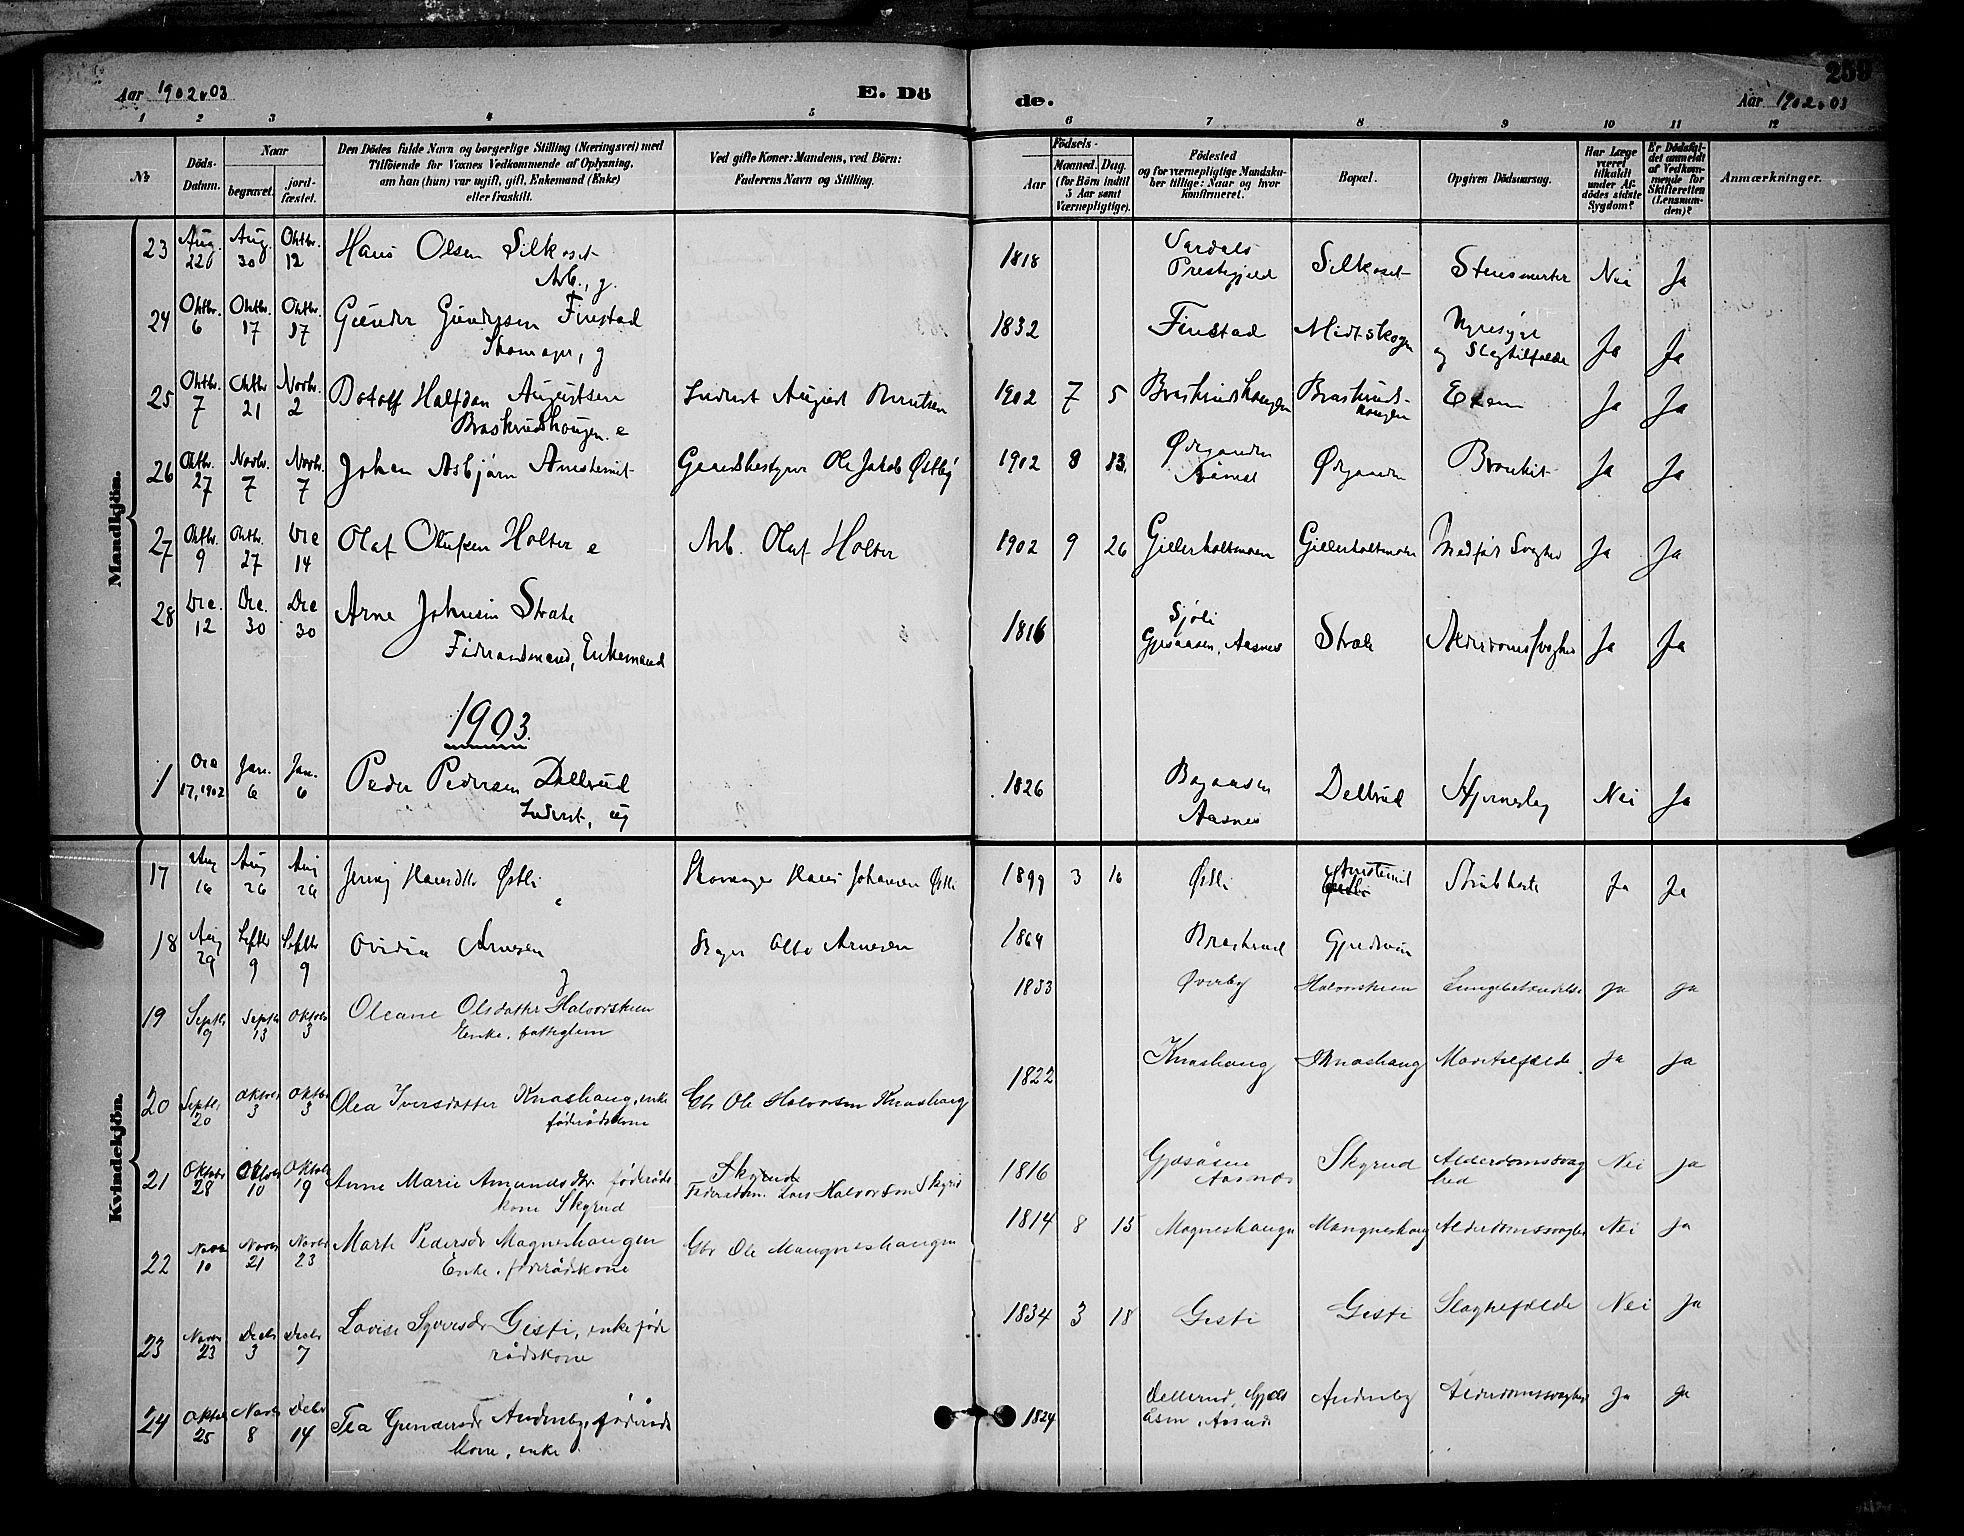 Aar 1902 03
E. Dö
de.
259
Aar 1902 03
1 2 3 4 5 6 7 8 9 10 11 12
No
Döds-
Datum.
Naar
begravet.
jord-
fæstet.
Den Dödes fulde Navn og borgerlige Stilling (Næringsvei) med
Tilföiende for Voxnes Vedkommende af Oplysning,
om han (hun) var ugift, gift, Enkemand (Enke)
eller fraskilt.
Ved gifte Koner: Mandens, ved Börn:
Faderens Navn og Stilling.
Födsels-
Aar
Maaned.
Dag.
(for Börn indtil
3 Aar samt
Værnepligtige).
Födested
og for værnepligtige Mandska-
ber tillige: Naar og hvor
konfirmeret.
Bopæl.
Opgiven Dödsaarsag.
Har Læge
været
tilkaldt
under Af-
dödes sidste
Sygdom?
Er Dödsfal-
det anmeldt
af Vedkom-
mende for
Skifteretten
(Lensman-
den)?
Anmærkninger.
Mandkjön.
23 Aug. Aug. 30 Oktbr. 12 Hans Olsen Silkoset
Arb., g.
1818 Prestegjeld Silkoset Nei Ja
24 Oktbr. 6 Oktbr. 17 Oktbr. 17 Gunder Gundersen Finstad
Skomager, g
1832 Finstad Midtskogen
og Slagtilfælde Ja Ja
25 Oktbr. 7 Oktbr. 21 Novbr. 2 Halfdan Augustsen
Braskrudhougen. e
Inderst August
1902 7 5 Braskrudhaugen Braskrud-
haugen Ja Ja
26 Oktbr. 27 Novbr. 7 Novbr. 7 Johan Asbjørn
Gaardbestyrer Ole Jakob Østby
1902 8 13 Bronkit Ja Ja
27 Oktbr. 9 Oktbr. 27 Dec 14 Olaf Olufsen Holter e
Arb. Oluf Holter
1902 9 26 Gillerholtmoen Gillerholtmoen Medfødt Svaghed Ja Ja
28 Dec. 12 Dec. 30 Dec 30 Arne Johnsen Strate
Føderaadsmand, Enkemand
1816 Sjøli
Gjesaasen, Aasnes Alderdomssvaghed Ja Ja
1903
1 Dec 17, 1902 Jan. 6 Jan. 6 Peder Pedersen Dellerud
Inderst, ug
1826
Aasnes Dellerud Nei Ja
Kvindekjön.
17 Aug 16 Aug 26 Aug 26 Jenny Hansdtr Østli
e
Skomager Hans Johansen Østli
1899 3 16 Østli Strubehoste Ja Ja
18 Aug 29 Septbr 9 Septbr 9 Ovidia Arnesen
g
Otto Arnesen
1864 Braskrud
19 Septbr 9 Septbr 13 Oktober 3 Oleane Olsdatter Halvorskeen
Enke. fattiglem
1833 Øverby Halvorskeen Lungebetændelse Ja Ja
20 Septbr 20 Oktober 3 Oktbr 3 Olea Iversdatter Knashaug, enke
føderådskone
Gbr Ole Halvorsen Knashaug
1822 Knashaug Knashaug Ja Ja
21 Oktober 28 Oktober 10 Oktober 19 Anne Marie Amundsdtr. føderåds
kone Skyrud
Lars Halvorsen Skyrud
1816 Gjesåsen
Aasnes Skyrud Alderdomssvag
hed Nei Ja
22 Novbr 10 Novbr 21 Novbr 23 Marte Pedersdr Magneshaugen
Enke. føderådskone
Gbr Ole Mangneshaugen
1814 8 15 Magneshaugen Mangneshaug Alderdomssvaghed Nei Ja
23 Novbr 23 Decbr 3 Decbr 7 Lovise Syversdr Gisti, enke føde
rådskone
1834 3 18 Gisti Gisti Slagtilfælde Nei Ja
24 Oktober 25 Novbr 8 Decbr 14 Tea Gundersdr Andneby, føderåds
kone, enke
1824 Dellerud, Gjes
åsen, Aasnes Andneby Alderdomssvaghed Ja Ja